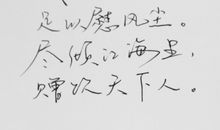 足以慰风尘。
尽倾江海里，
赠饮天下人。